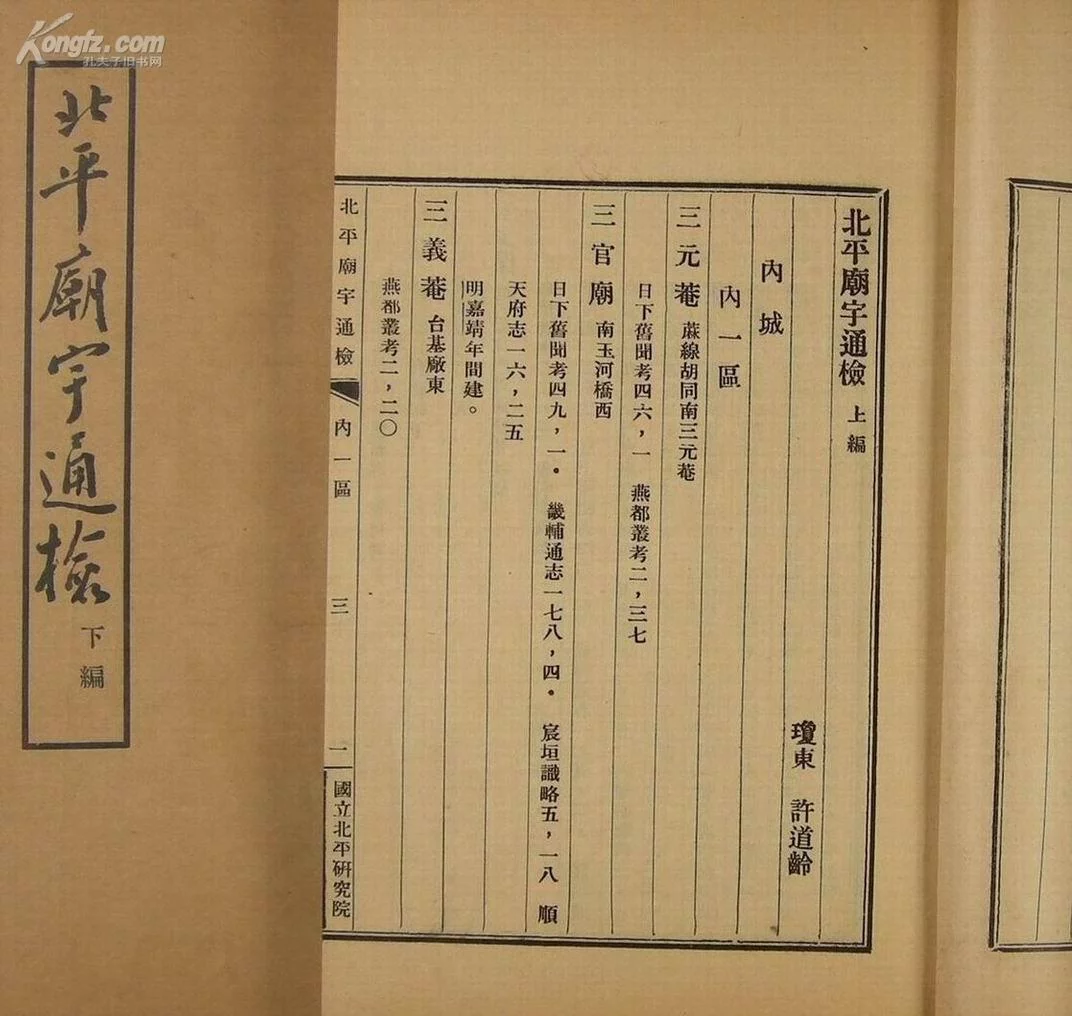 Kongfz.com
孔夫子旧书网
北平廟宇通檢 上編
瓊東 許道齡
內城
內一區
三元菴 蔴線胡同南三元菴
日下舊聞考四六，一 燕都叢考二，三七
三官廟 南玉河橋西
日下舊聞考四九，一。 畿輔通志一七八，四。 宸垣識略五，一八 順
天府志一六，二五
明嘉靖年間建。
三義菴 台基廠東
燕都叢考二，二〇
北平廟宇通檢 內一區 三 二 國立北平研究院
北平廟宇通檢 下編